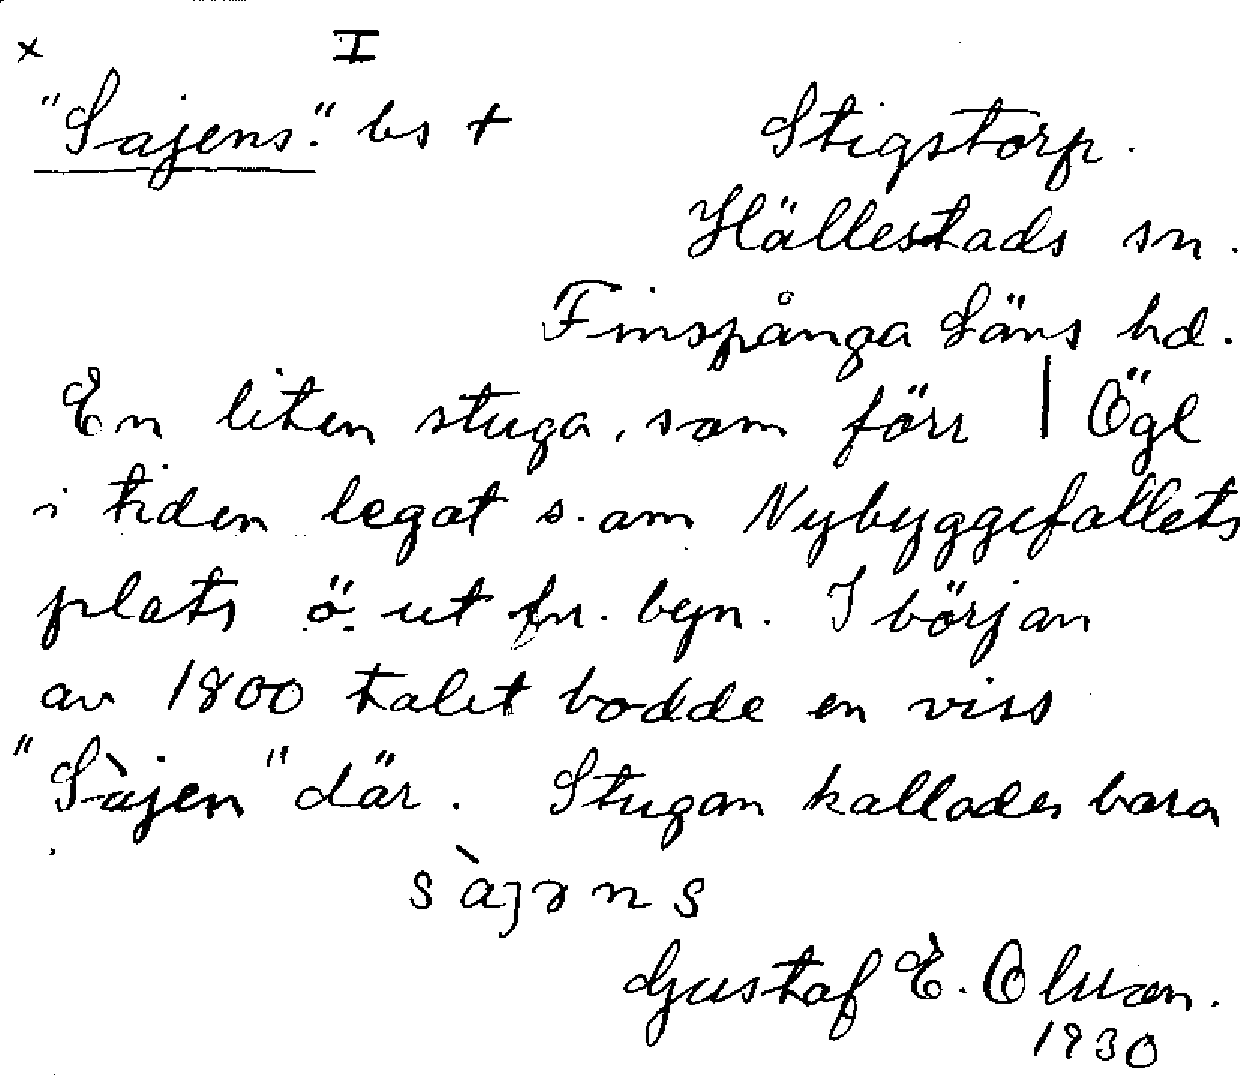 x I
"Sajens." bs +
Stigstorp.
Hällestads sn.
Finspånga Läns hd.
En liten stuga, som förr | Ögl
i tiden legat s. om Nybyggefallets
plats ö. ut fr. byn. I början
av 1800 talet bodde en viss
"Sàjen" där. Stugan kallades bara
sàjəns
Gustaf E.
1930